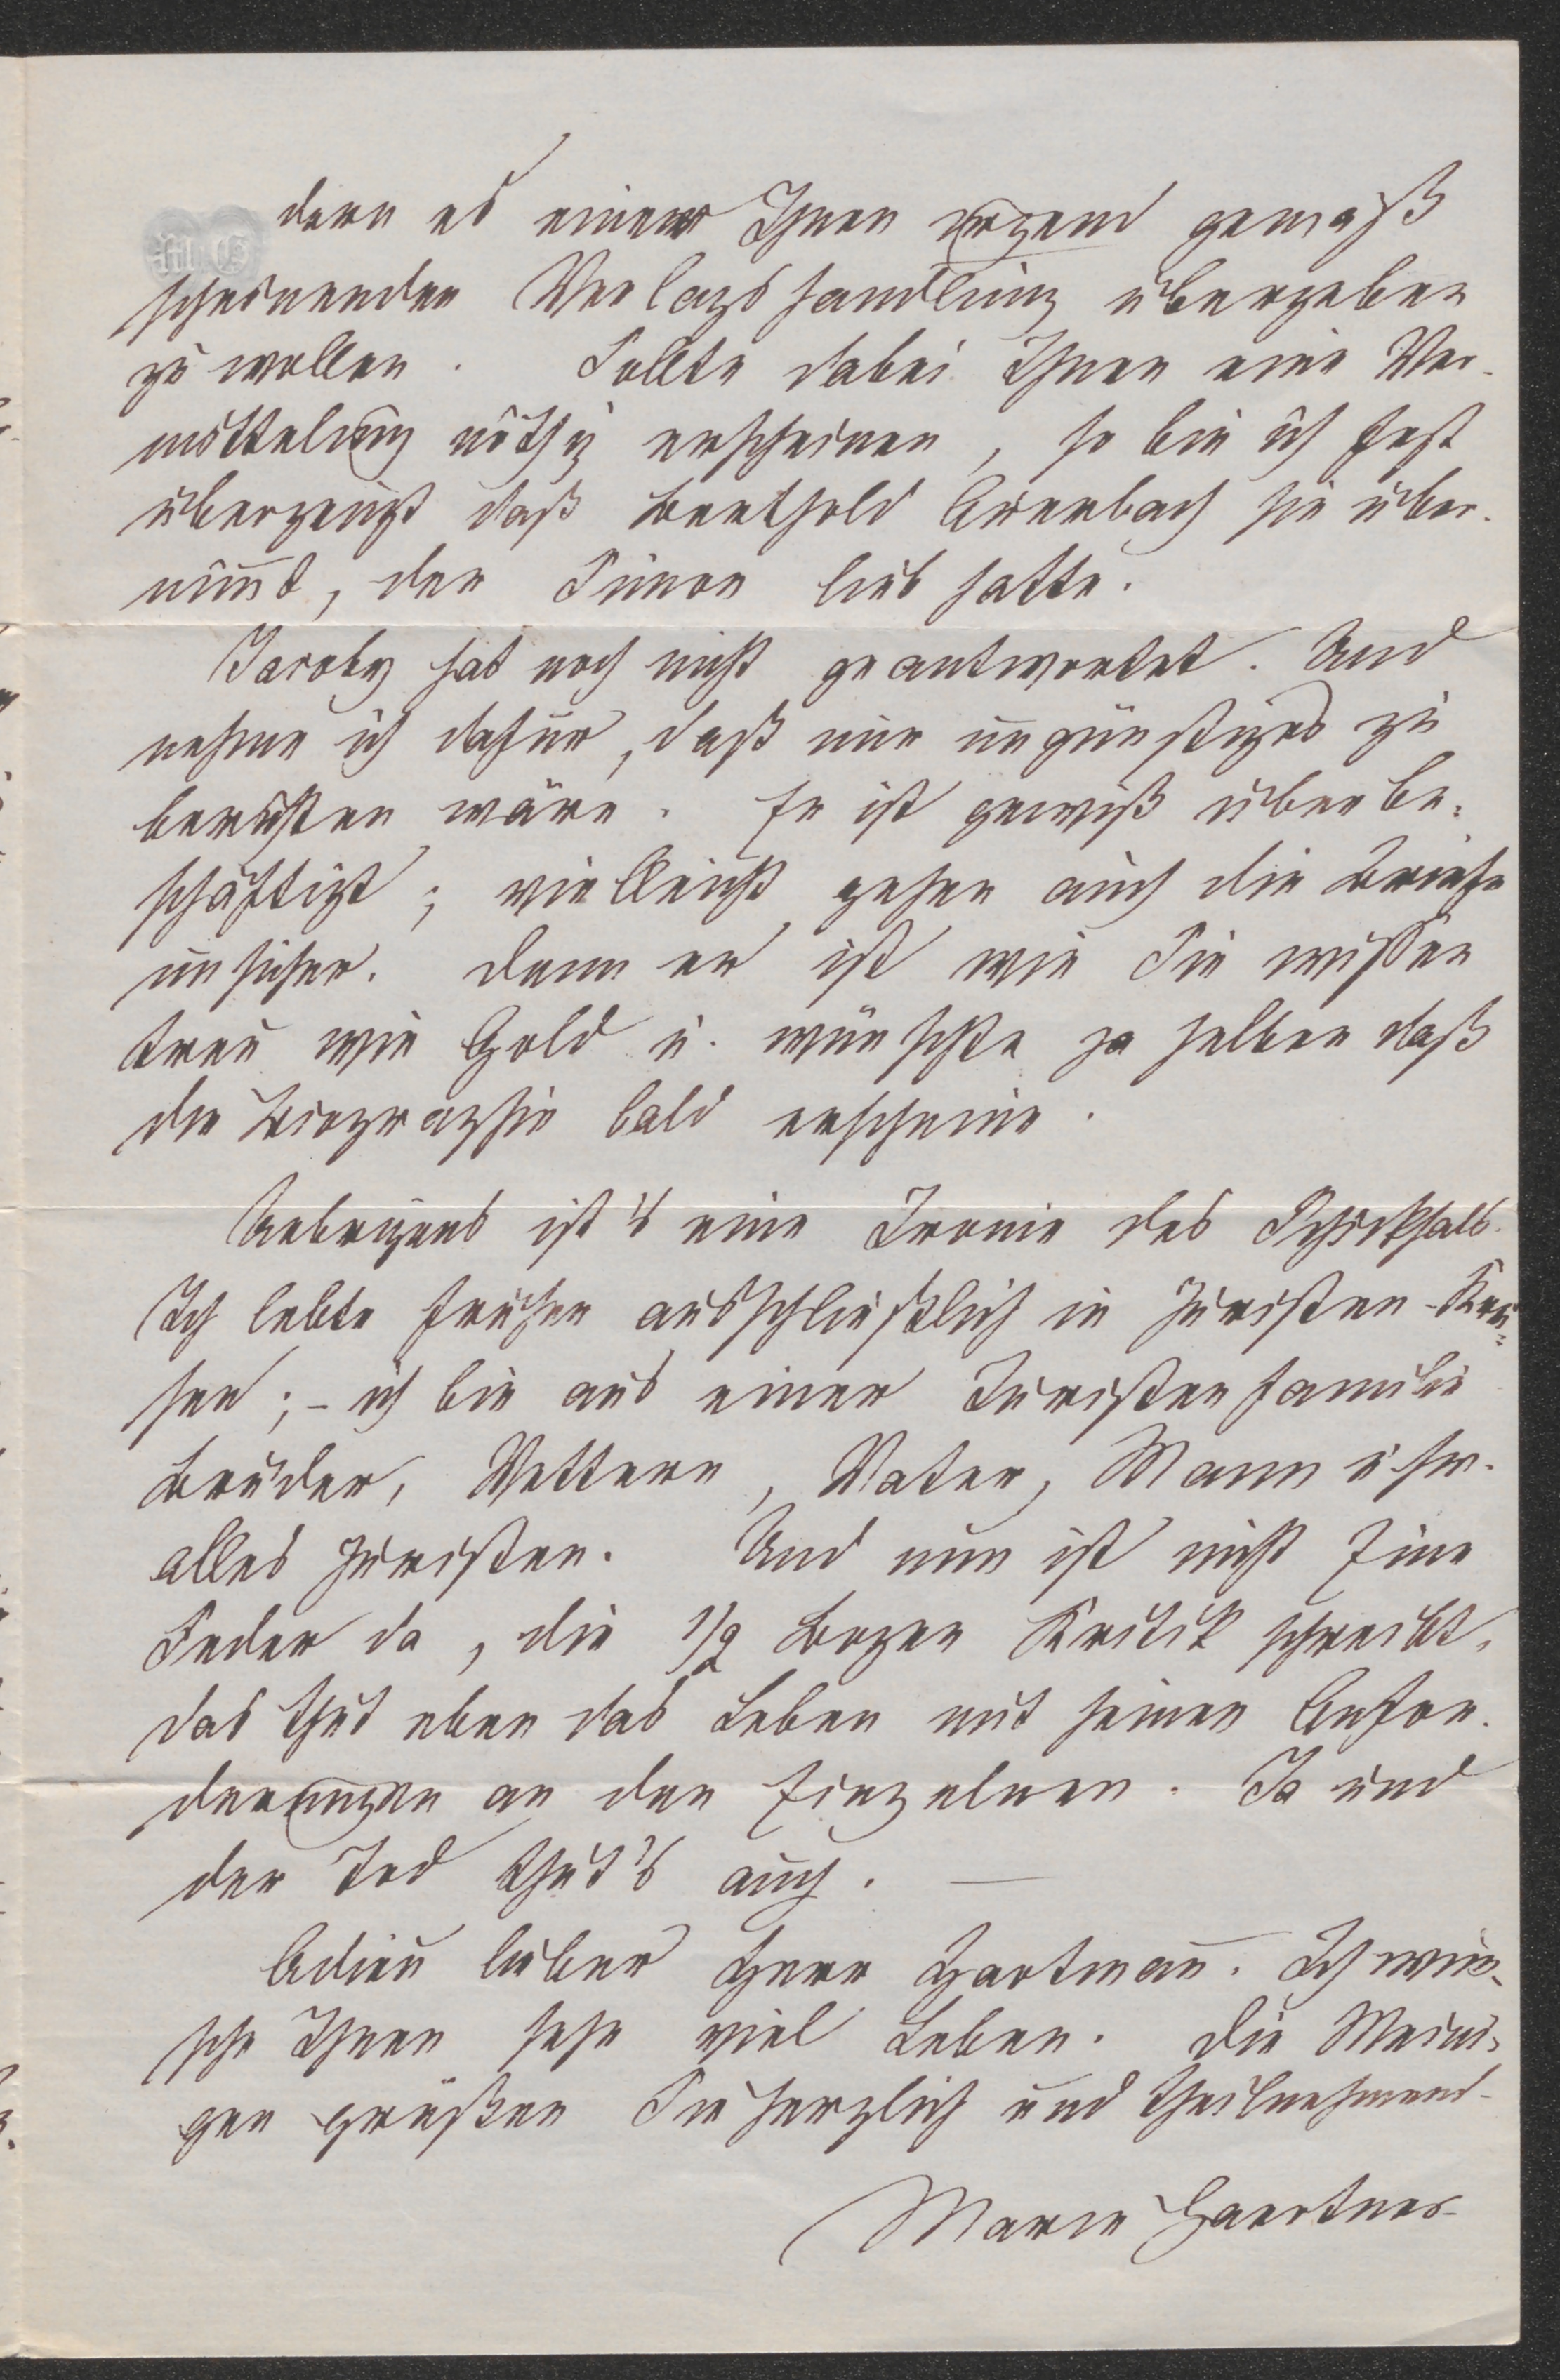 dern es einer Ihnen irgend gemäß
M. G.
scheinenden Verlagshandlung übergeben
zu wollen. Sollte dabei Ihnen eine Ver-
mittelung nöthig erscheinen, so bin ich fest
überzeugt daß Berthold Auerbach sie über-
nim̄t, der Simon lieb hatte.
Jacoby hat noch nicht geantwortet. Und
nehme ich dafür, daß nur ungünstiges zu
berichten wäre. Er ist gewiß überbe-
schäftigt; vielleicht gehen auch die Briefe
unsicher. Denn er ist wie Sie wissen
treu wie Gold u. wünschte ja selber daß
die Biographie bald erscheine.
Uebrigens ist's eine Ironie des Schicksals.
Ich lebte früher ausschließlich in Juristen-Krei-
sen; – ich bin aus einer Juristenfamilie
Brüder, Vettern, Vater, Mann usw.
alles Juristen. Und nun ist nicht Eine
Feder da, die 1/2 Bogen Kritik schreibt,
das thut eben das Leben mit seinen Anfor-
derungen an den Einzelnen. Ja und
der Tod thut's auch. —
Adieu lieber Herr Hartman̄. Ich wün-
sche Ihnen sehr viel Leben. Die Meini-
gen grüßen Sie herzlich und theilnehmend.
Marie Gaertner